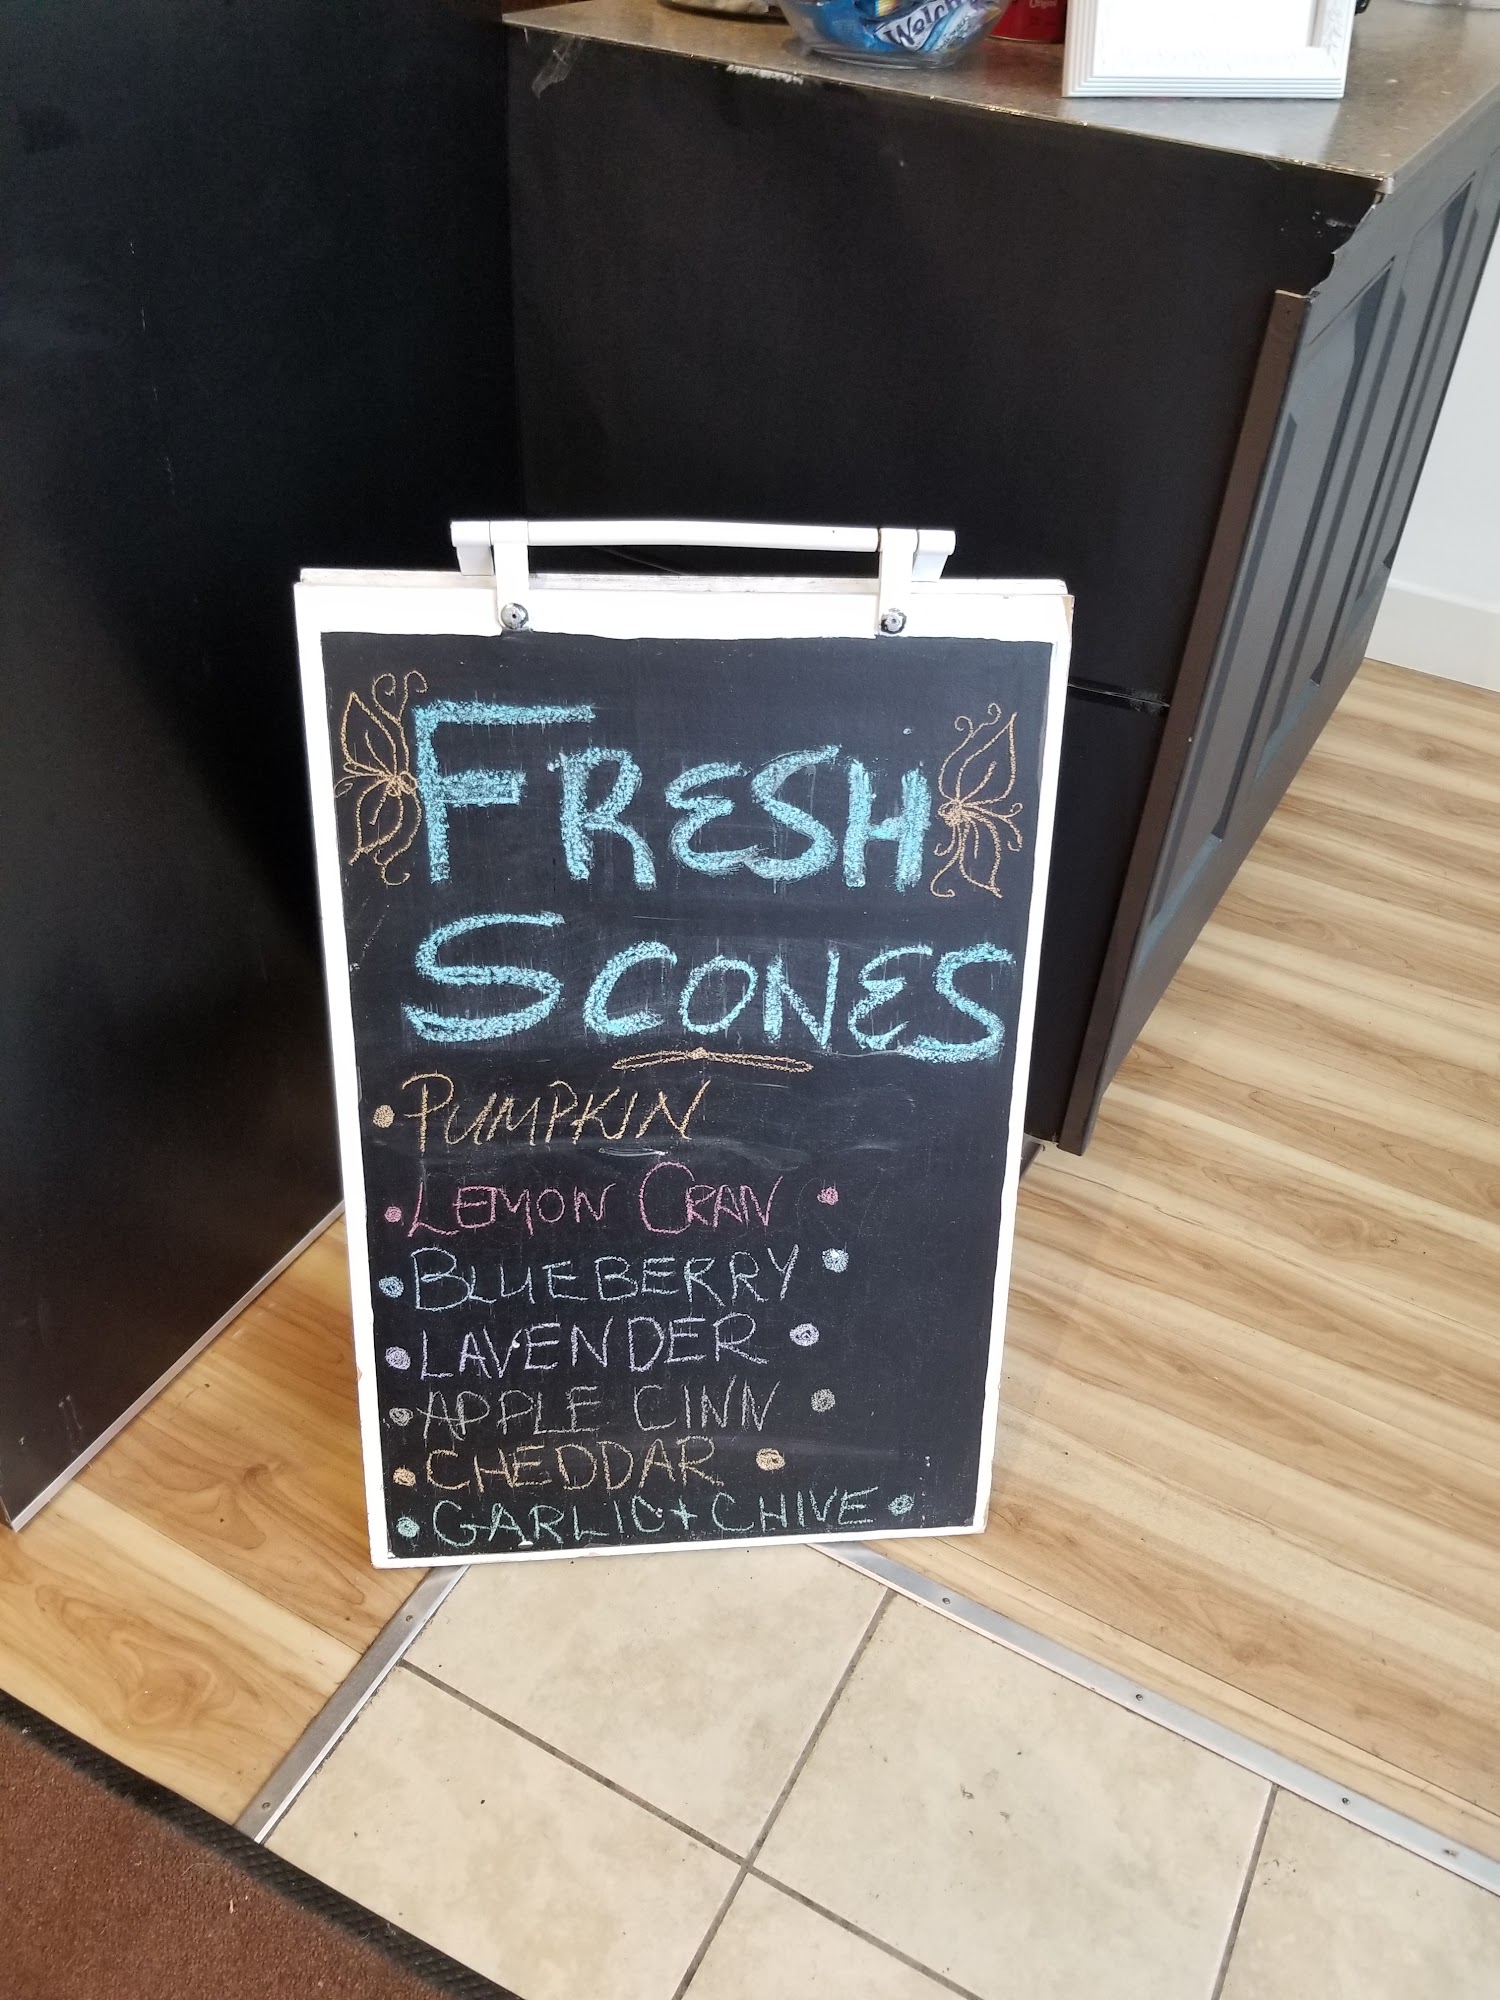 Welch's
FRESH
SCONES
• PUMPKIN
• LEMON CRAN •
• BLUEBERRY •
• LAVENDER •
• APPLE CINN •
• CHEDDAR •
• GARLIC + CHIVE •